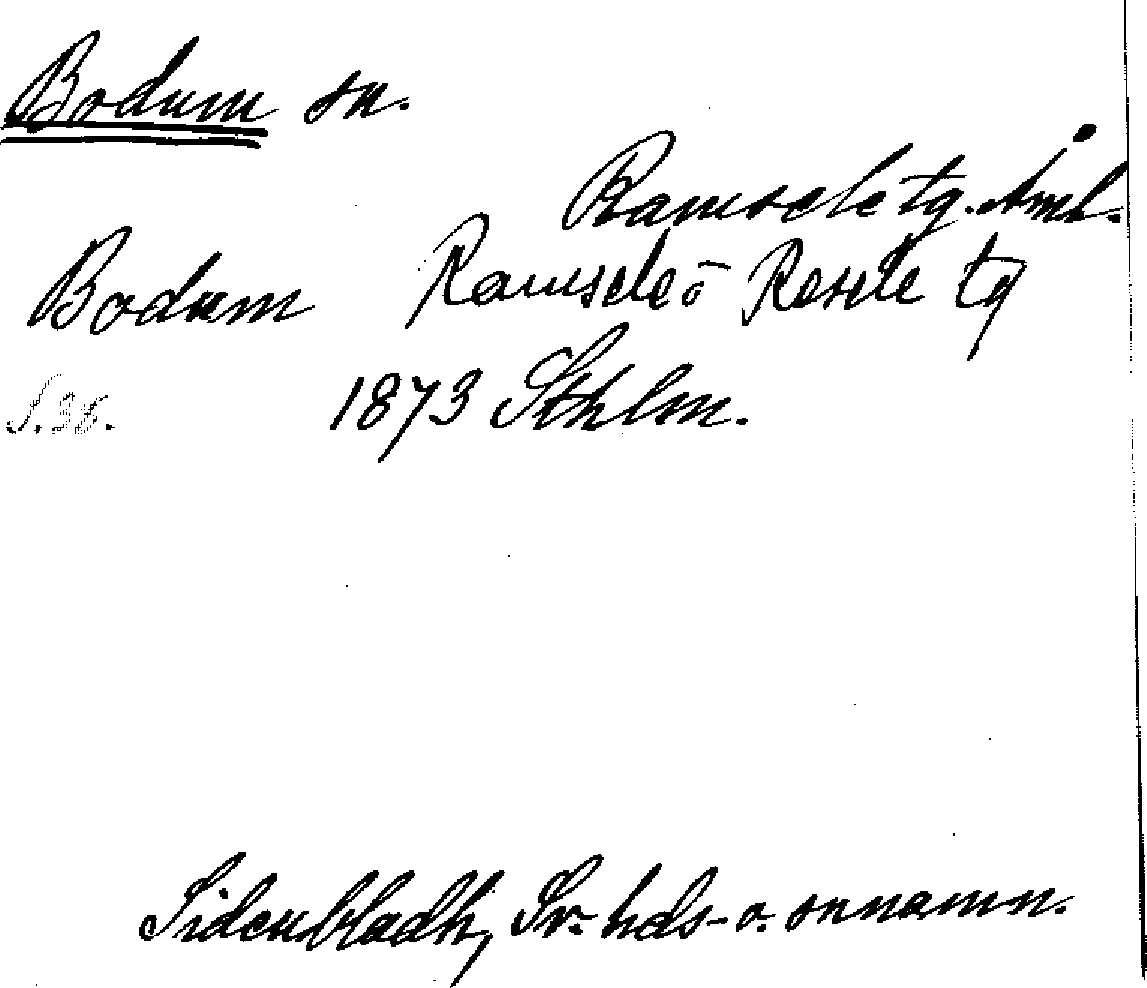 Bodum sn.
Ramsele tg. Åml.
Bodum Ramsele o Resele tg
1873 Sthlm.
S. 38.
Sidenbladh, Sv. hds- o. snnamn.